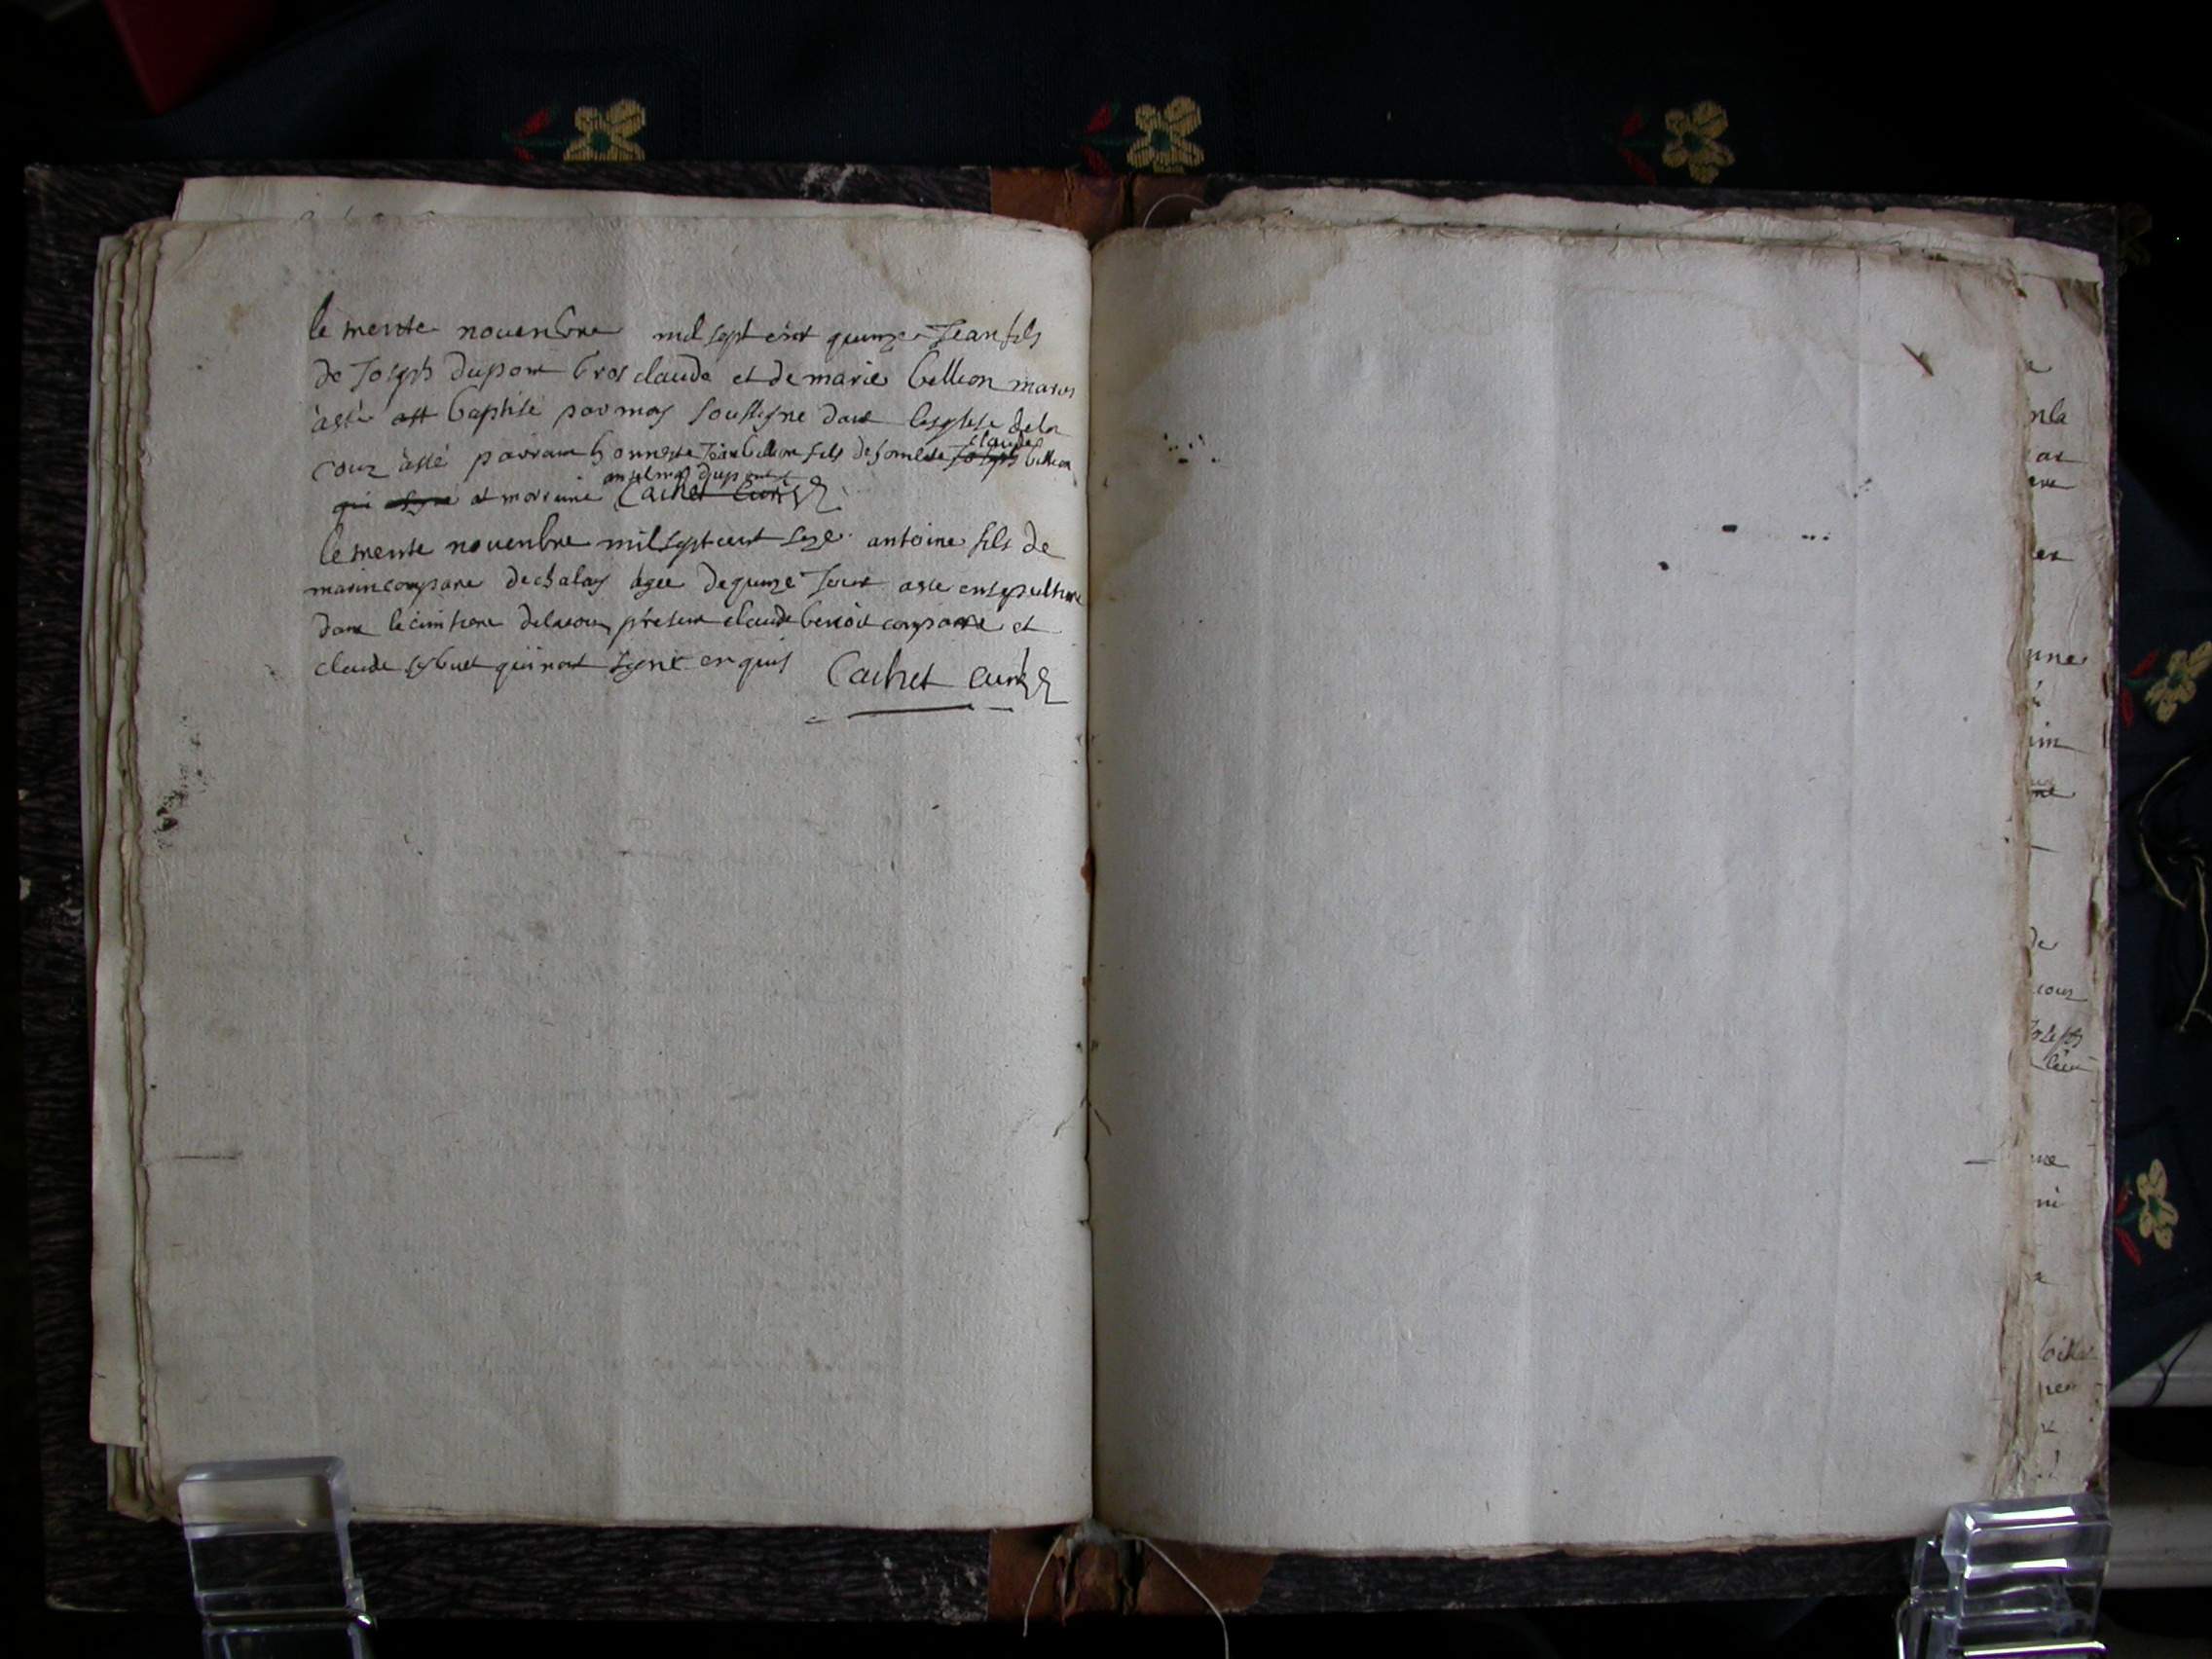 le trente novembre mil sept cent quinze Jean fils
de Joseph dupont bros claude et de marie billion maries
a esté baptisé par moy soussigne dans lesglise de la
cour a esté parrain honneste Jean billion fils de honneste claude billion
et marraine anselme dupont Cachet Curé
le trente novembre mil sept cent seze antoine fils de
marin compare de chalay agee de quinze Jour a esté ensepulturé
dans le cimitiere de la cour present claude benoit compare et
claude sybuet qui nont signé enquis Cachet curé